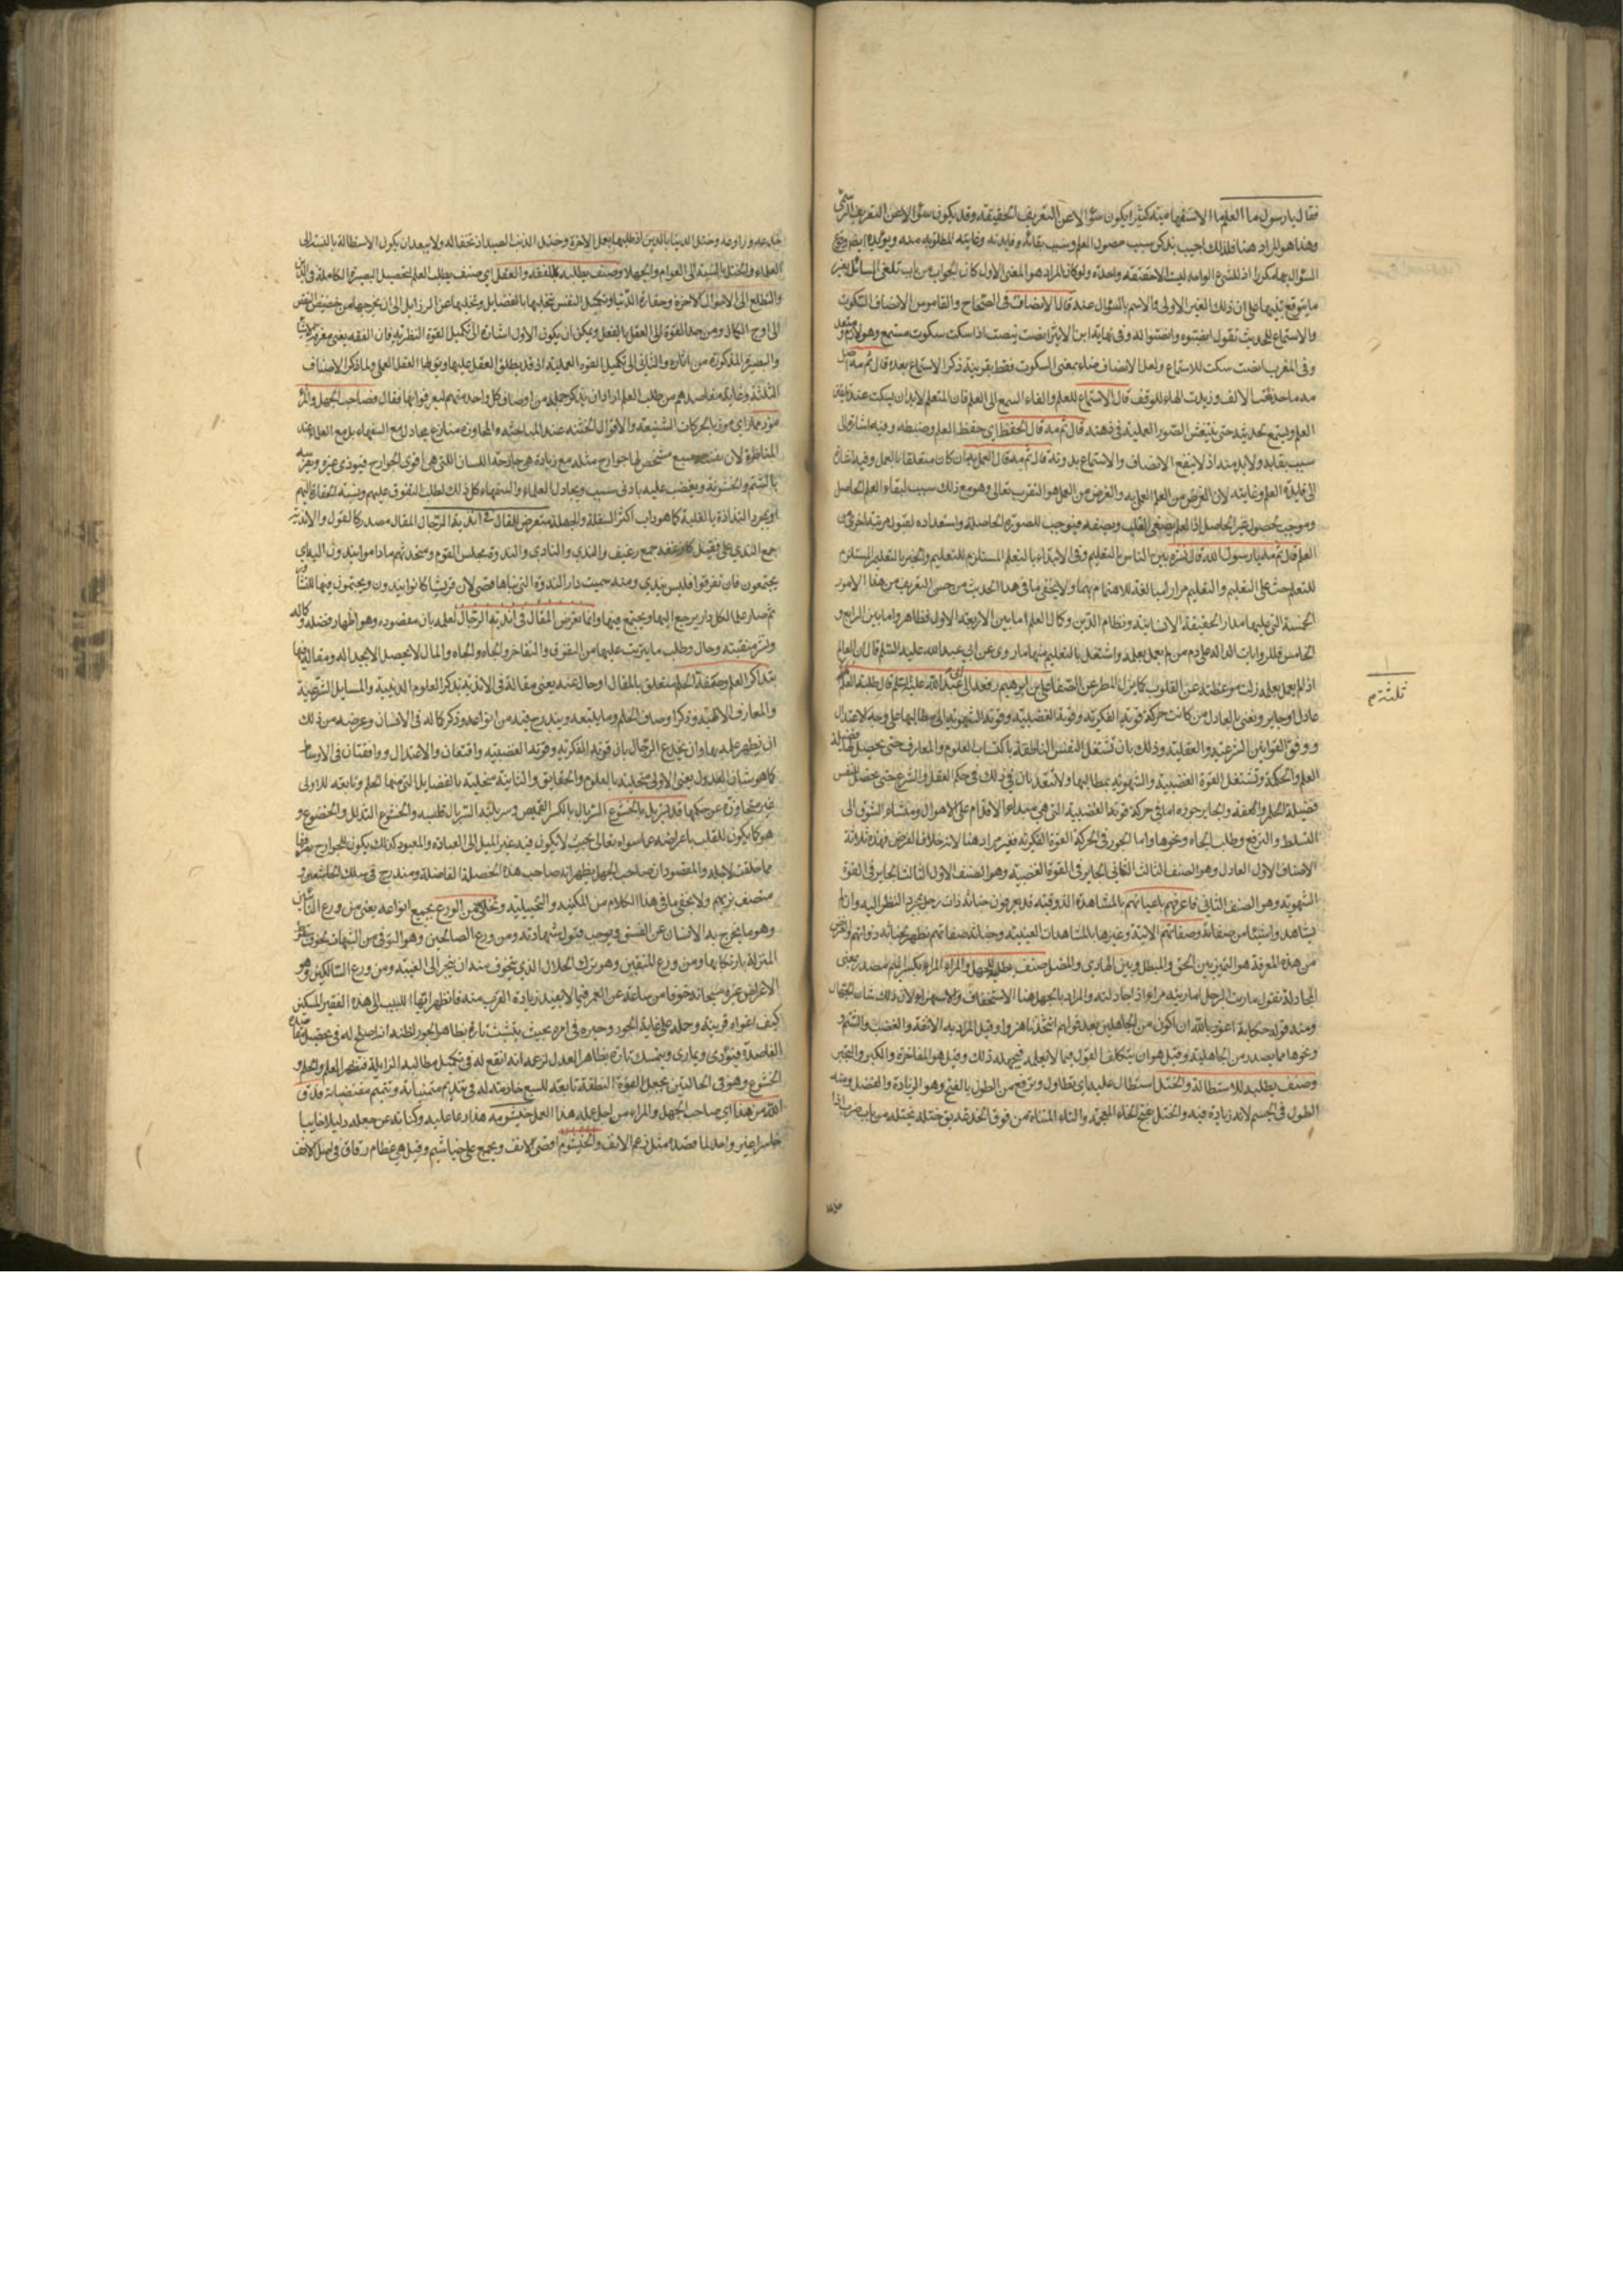 فقال يارسول ما العلم ما الاستفهامية كثيرا يكون سؤالا عن التعريف الحقيقة وقد يكون سؤالا عن التعريف الرسمى
وهذا هو المراد هنا فلذلك اجيب بذكر سبب حصول العلم وسبب بقائه وفايدته وغايته المطلوبه منه ويؤيده ايضا وقوع
السؤال بما مكررا اذ للشىء الواحد ليست الا حقيقة واحدة ولو كان المراد هو المعنى الاول كان الجواب من باب تلقى السائل بغير
ما يترقع تنبيها على ان ذلك الغير الاولى والاسم بالسؤال عنه قال الانصات فى الصحاح والقاموس الانصات السكوت
والاستماع للحديث تقول انصتوه وانصتوا له وفى نهاية ابن الاثير انصت ينصت اذا سكت سكوت مستمع وهو لازم ومتعد
وفى المغرب انصت سكت للاستماع ولعل الانصات هنا بمعنى السكوت فقط بقرينة ذكر الاستماع بعده قال ثم مه اصل
مه ما حذفت الالف وزيدت الهاء للوقف قال الاستماع للعلم والقاء السمع الى العلم فان المتعلم لابد ان يسكت عند افادة
العلم ويستمع لحديثه حتى ينتقش الصور العلمية فى ذهنه قال ثم مه قال الحفظ اى حفظ العلم وضبطه وفيه اشارة الى
سبب بقائه ولابد منه اذ لا ينفع الانصات والاستماع بدونه قال ثم مه قال العمل به ان كان متعلقا بالعمل وفيه اشارة
الى فايدة العلم وغايته لان الغرض من العلم العمل به والغرض من العمل هو التقرب به تعالى وهو مع ذلك سبب لبقاء العلم الحاصل
وموجب لحصول غير الحاصل اذ العلم يصفى القلب ويصقله فيوجب للصورة الحاصلة واستعداده لقبول مرتبة اخرى من
العلم قال ثم مه يارسول الله قال نشره بين الناس بالتعليم وفى الابتداء بالتعلم المستلزم للتعليم والختم بالتعليم المستلزم
للتعلم حث على التعليم والتعلم مرارا مبالغة للاهتمام بهما ولا يخفى ما فى هذا الحديث من حسن التعريف من هذا الامور
الخمسة التى عليها مدار الحقيقة الانسانية ونظام الدين وكمال العلم اما بين الاربعة الاول فظاهر واما بين الرابع و
الخامس فللروايات الدالة على ذم من لم يعمل بعلمه واشتغل بالتعليم منها ما روى عن ابى عبد الله عليه السلم قال ان العالم
اذ لم يعمل بعلمه زلت موعظته عن القلوب كما يزل المطر عن الصفا على بن ابرهيم رفعه الى ابى عبد الله عليه السلم قال طلبة العلم
عادل او جاير ونعنى بالعادل من كانت حركة قوته الفكرية وقوته الغضبية وقوته الشهوية الى مطالبها على وجه الاعتدال
ووفق القوانين الشرعية والعقلية وذلك بان تشتغل النفس الناطقة باكتساب العلوم والمعارف حتى يحصل لها فضيلة
العلم والحكمة وتشتغل القوة الغضبية والشهوية بمطالبها ولا تتعديان فى ذلك فى حكم العقل والشرع حتى يحصل للنفس
فضيلة الحلم والعفة والجاير جوره اما فى حركة قوته الغضبية التى هى مبدء الاقدام على الاهوال ومنشاء الشوق الى
التسلط والترفع وطلب الجاه ونحوها واما الجور فى الحركة القوة الفكرية فغير مراد هنا لانه خلاف الفرض فهذه ثلاثة
الاصناف الاول العادل وهو الصنف الثالث الثانى الجاير فى القوة الغضبية وهو الصنف الاول الثالث الجاير فى القوة
الشهوية وهو الصنف الثانى فاعرفهم باعيانهم بالمشاهدة الذوقية قد يعرفون خباثة ذات رجل بمجرد النظر اليه وان لم
يشاهدوا شيئا من صفاته وصفاتهم الاتية وغيرها بالمشاهدات العينية وخباثة صفاتهم تظهر خباثة ذواتهم والغرض
من هذه المعرفة هو التميز بين الحق والمبطل وبين الهادى والمضل صنف يطلبه للجهل والمراء المراء بكسر الميم مصدر بمعنى
المجادلة تقول ماريت الرجل اماريه مراء اذا جادلته والمراد بالجهل هنا الاستخفاف والاستهزاء لان ذلك شان الجهال
ومنه قوله حكاية اعوذ بالله ان اكون من الجاهلين بعد قولهم اتتخذنا هزوا وقيل المراد به الانفة والغضب والشتم
ونحوها مما يصدر من الجاهلية وقيل هو ان يتكلف القول فيما لا يعلمه فيجهله ذلك وقيل هو المفاخرة والكبر والتجبر
وصنف يطلبه للاستطالة والختل استطال عليه اى تطاول وترفع من الطول بالفتح وهو الزيادة والفضل ومنه
الطول فى الجسم لانه زيادة فيه والختل بفتح الخاء المعجمة والتاء المثناة من فوق الخدعة يق ختله يختله من باب ضرب اذا
ثلثتهم
خدعه وراوغه وختل الدنيا بالدين اذ طلبها بعمل الاخرة وختل الذئب الصيد اذ تخفى له ولا يبعد ان يكون الاستطالة بالنسبة الى
العلماء والختل بالنسبة الى العوام والجهلا وصنف يطلبه للفقه والعقل اى صنف يطلب العلم لتحصيل البصيرة الكاملة فى الدين
والتطلع الى الاحوال الاخرة وحقارة الدنيا وتكميل النفس بتحليها بالفضايل وتخليها عن الرذايل الى ان يخرجها من حضيض النقص
الى اوج الكمال ومن حد القوة الى العقل بالفعل ويمكن ان يكون الاول اشارة الى تكميل القوة النظرية فان الفقه يعنى معرفة
والبصيرة المذكورة من اثاره والثانى الى تكميل القوه العملية اذ قد يطلق العقل عليها ويق لها العقل العملى ولما ذكر الاصناف
الثلثة وغاية مقاصدهم من طلب العلم اراد ان يذكر جملة من اوصاف كل واحد منهم ليعرفوا بها فقال فصاحب الجهل والمراء
موذ ممار اى موذ بالحركات الشنيعة والاقوال الخشنة عند المباحثة والمحاورة منازع مجادل مع السفهاء بل مع العلماء عند
المناظرة لان نفسه سبع متشخص لها جوارح مثله مع زيادة هى جارحة اللسان التى هى اقوى الجوارح فيوذى غيره ويفترسه
بالشتم والخشونة ويغضب عليه بادنى سبب ويجادل العلماء والسفهاء كل ذلك لطلب التفوق عليهم ونسبة الحقارة اليهم
او بمجرد التذاذه بالغلبة كما هو داب اكثر السفلة والجهلة متعرض للمقال فى اندية الرجال المقال مصدر كالقول والاندية
جمع الندى على فعيل كارغفة جمع رغيف والندى والنادى والندوة مجلس القوم ومتحدثهم ماداموا يندون اليه اى
يجتمعون فان تفرقوا فليس بندى ومنه سميت دار الندوة التى بناها قصى لان قريشا كانوا يندون ويجتمعون فيها للتشاور
ثم صار علما لكل دار يرجع اليها ويجتمع فيها وانما تعرض المقال فى اندية الرجال لعلمه بان مقصوده وهو اظهار فضله وكماله
ونشر منقبته وحال وطلب ما يترتب عليها من التفوق والتفاخر والجاه والمال لا يحصل الا بجداله ومقاله فيها
بتذاكر العلم وصفة الحلم متعلق بالمقال او حال عنه يعنى مقاله فى الاندية بذكر العلوم الدينية والمسايل الشرعية
والمعارف الالهية وذكر اوصاف الحلم وما يتبعه ويندرج فيه من انواعه وذكر كماله فى الانسان وغرضه من ذلك
ان يظهر علمه بها وان يخدع الرجال بان قوته الفكرية وقوته الغضبية واقعتان والاعتدال وواقفتان فى الاوساط
كما هو شان العدول يعنى الاولى متحلية بالعلوم والحقايق والثانية متحلية بالفضايل التى منها الحلم وتابعة للاولى
غير متجاوزة عن حكمها قد تسربل بالخشوع السربال بالكسر القميص وسربلته السربال فلبسه والخشوع التذلل والخضوع و
هو كما يكون للقلب باعراضه عما سواه تعالى بحيث لا يكون فيه غير الميل الى العبادة والمعبود كذلك يكون للجوارح بصرفها
مما خلقت لاجله والمقصود ان صاحب الجهل يظهر انه صاحب هذه الخصلة الفاضلة ومندرج فى سلك الخاشعين و
متصف بزيهم ولا يخفى ما فى هذا الكلام من المكنية والتخييلية وتخلى من الورع بجميع انواعه يعنى من ورع التائبين
وهو ما يخرج به الانسان عن الفسق ويوجب قبول شهادته ومن ورع الصالحين وهو التوقى من الشبهات لخوف سقوط
المنزلة بارتكابها ومن ورع المتقين وهو ترك الحلال الذى يتخوف منه ان ينجر الى الغيبة ومن ورع السالكين وهو
الاعراض عن غيره سبحانه خوفا من ساعة عن العمر فيما لا يفيد زيادة القرب منه فانظر ايها اللبيب الى هذه الفقير المسكين
كيف اغواه قرينه وحمله على غاية الجور وحيره فى امره بحيث يتشبث تارة بظاهر الجور لظنه انه اصلح له فى تحصيل مقاصده
الفاصدة فيؤذى ويمارى ويتمسك تارة بظاهر العدل لزعمه انه انفع له فى تكميل مطالبه الزايلة فيظهر العلم والحلم و
الخشوع وهو فى الحالتين يجعل القوة النطقة تابعة للسبع خادمة له فى تقديم متمنياته وتتميم مقتضياته فدق
الله من هذا اى صاحب الجهل والمراء من اجل عمله هذا العمل خيشومه هذا دعا عليه وكناية عن جعله ذليلا خايبا
خاسرا غير واجد لما قصده مثل رغم الانف والخيشوم اقصى الانف ويجمع على خياشيم وقيل هى عظام رقاق فى اصل الانف